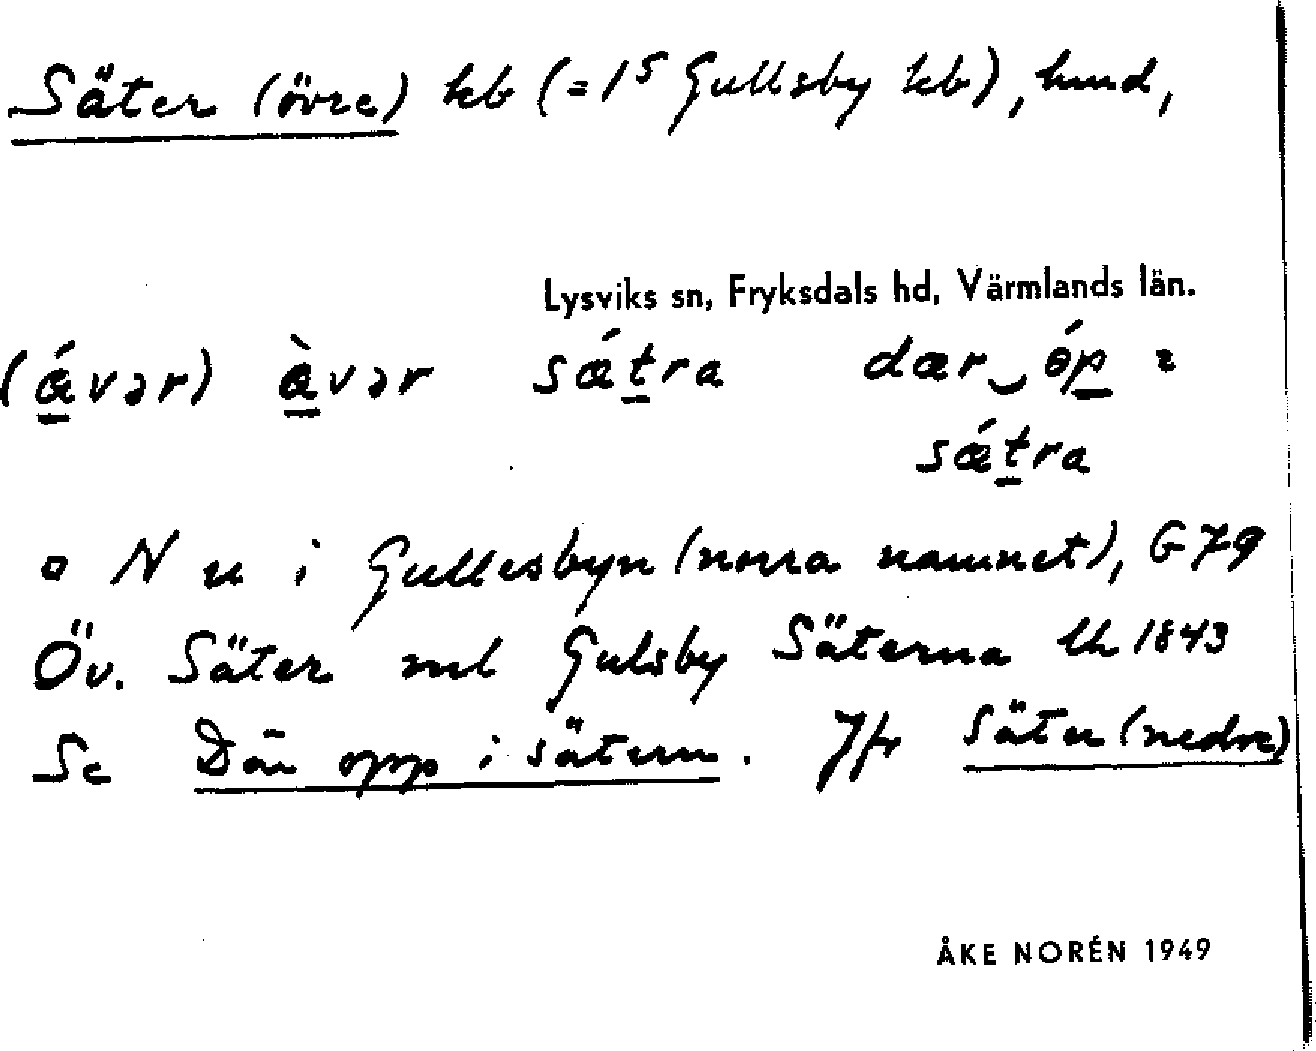 Säter (övre) hb (= 1⁵ Gullsby hb), hmd,
Lysviks sn, Fryksdals hd, Värmlands län.
(ǽvər) æ̀vər sǽtra dær‿óp ɪ
sǽtra
o N u i Gullesbyn (norra namnet), G 79
Öv. Säter ml Gulsby Säterna Uh 1843
Se Där opp i sätern. Jfr Säter (nedre)
ÅKE NORÉN 1949